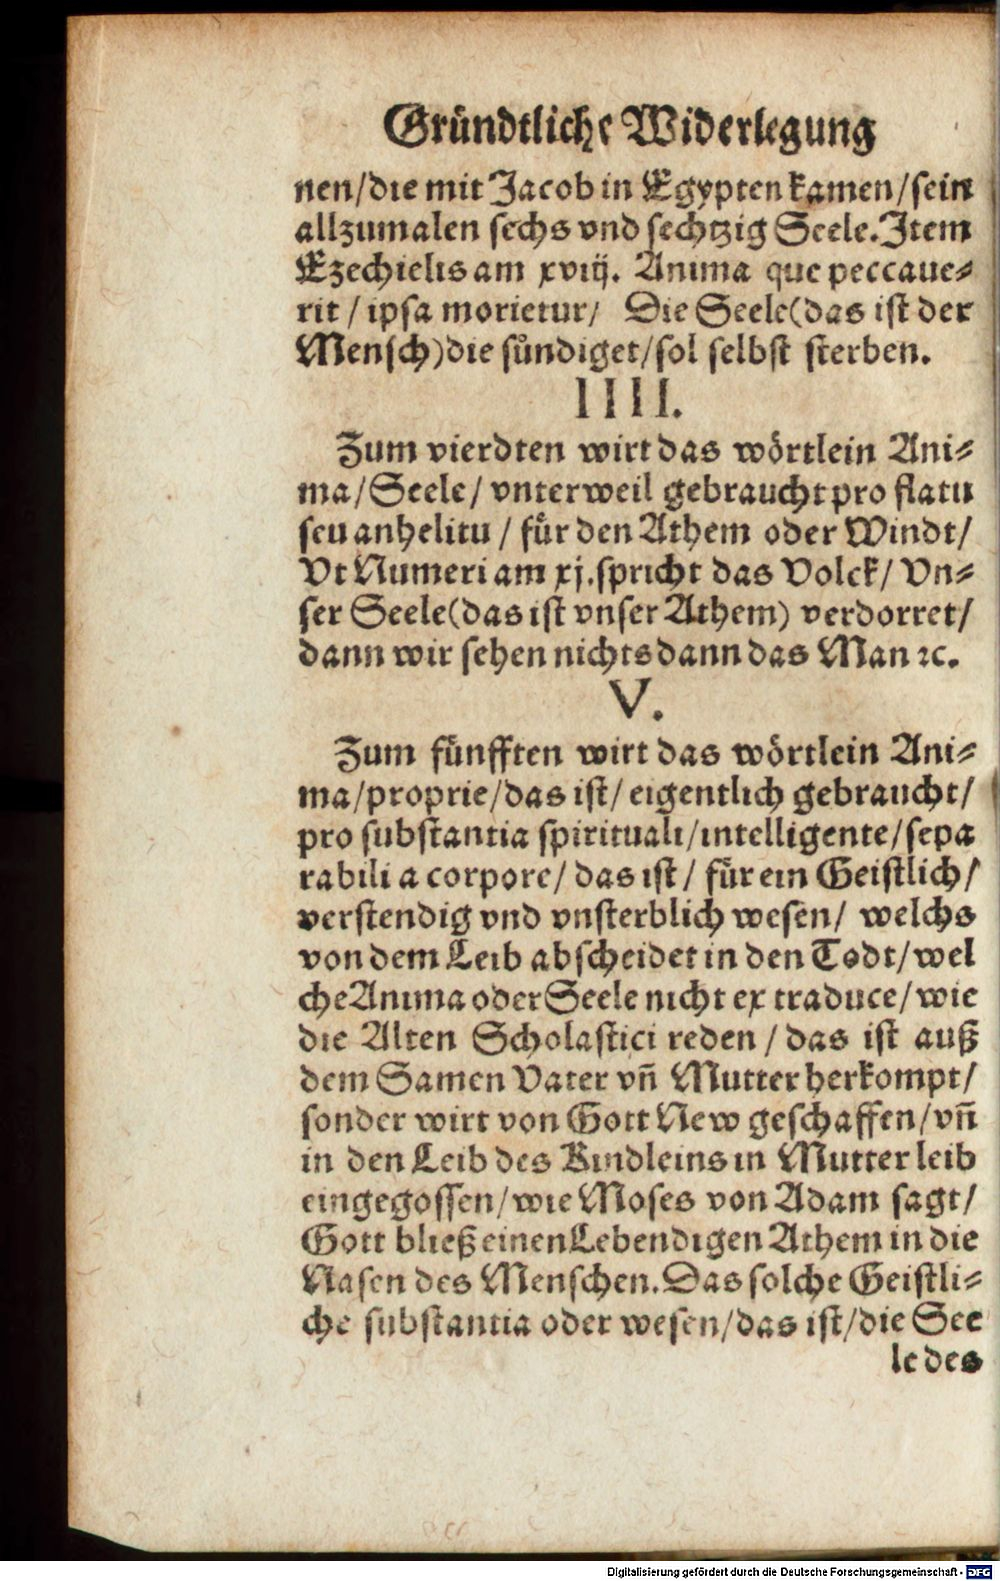 Gründtliche Widerlegung
nen/die mit Jacob in Egypten kamen/sein
allzumalen sechs vnd sechtzig Seele. Item
Ezechielis am xviij. Anima que peccaue-
rit / ipsa morietur/ Die Seele(das ist der
Mensch)die sündiget/sol selbst sterben.
IIII.
Zum vierdten wirt das wörtlein Ani-
ma/Seele/ vnterweil gebraucht pro flatu
seu anhelitu / für den Athem oder Windt/
Vt Numeri am xj. spricht das Volck/ Vn-
ser Seele(das ist vnser Athem) verdorret/
dann wir sehen nichts dann das Man ꝛc.
V.
Zum fünfften wirt das wörtlein Ani-
ma/proprie/das ist/ eigentlich gebraucht/
pro substantia spirituali/intelligente/sepa
rabili a corpore/ das ist/ für ein Geistlich/
verstendig vnd vnsterblich wesen/ welchs
von dem Leib abscheidet in den Todt/wel
che Anima oder Seele nicht ex traduce/wie
die Alten Scholastici reden / das ist auß
dem Samen Vater vñ Mutter herkompt/
sonder wirt von Gott New geschaffen/vñ
in den Leib des Kindleins in Mutter leib
eingegossen/wie Moses von Adam sagt/
Gott bließ einen Lebendigen Athem in die
Nasen des Menschen. Das solche Geistli-
che substantia oder wesen/das ist/die See
le des
Digitalisierung gefördert durch die Deutsche Forschungsgemeinschaft - DFG